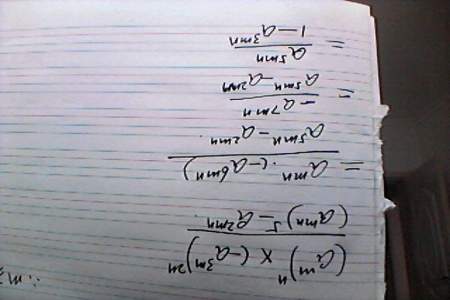 (a^m)^n × (-a^{3m})^{2n}
(a^{mn})^5 - a^{2mn}
= a^{mn} · (-a^{6mn})
a^{5mn} - a^{2mn}
= -a^{7mn}
a^{5mn} - a^{2mn}
= a^{5mn}
1 - a^{3mn}